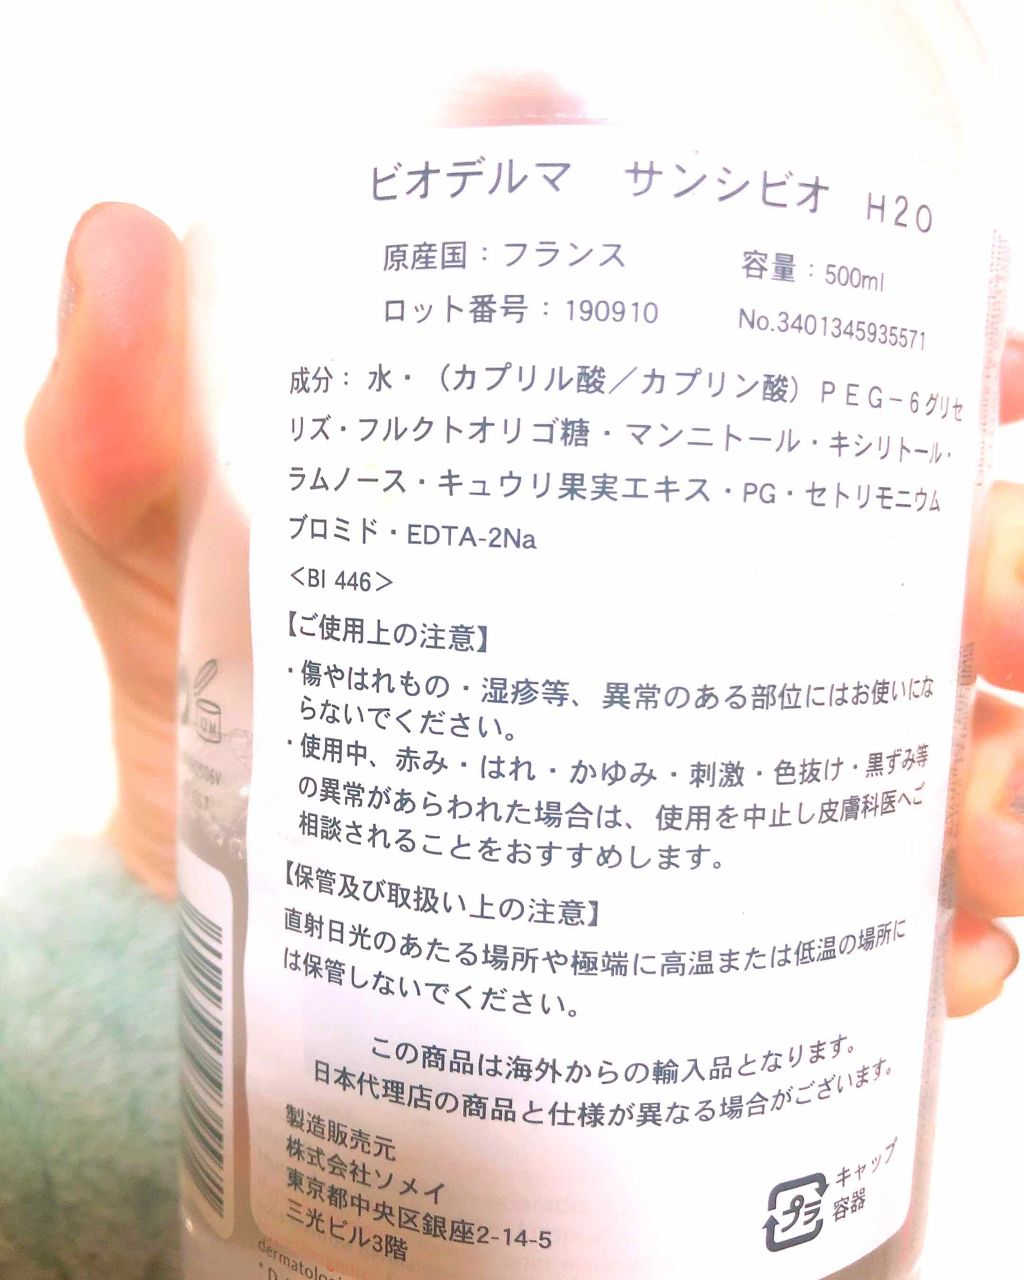 ビオデルマ　サンシビオ　H2O
原産国：フランス　容量：500ml
ロット番号：190910　No.3401345935571
成分：水・（カプリル酸／カプリン酸）ＰＥＧ－６グリセ
リズ・フルクトオリゴ糖・マンニトール・キシリトール・
ラムノース・キュウリ果実エキス・PG・セトリモニウム
ブロミド・EDTA-2Na
＜BI 446＞
【ご使用上の注意】
・傷やはれもの・湿疹等、異常のある部位にはお使いにな
らないでください。
・使用中、赤み・はれ・かゆみ・刺激・色抜け・黒ずみ等
の異常があらわれた場合は、使用を中止し皮膚科医へご
相談されることをおすすめします。
【保管及び取扱い上の注意】
直射日光のあたる場所や極端に高温または低温の場所に
は保管しないでください。
この商品は海外からの輸入品となります。
日本代理店の商品と仕様が異なる場合がございます。
製造販売元
株式会社ソメイ
東京都中央区銀座2-14-5
三光ビル3階
プラ
キャップ
容器
12 M